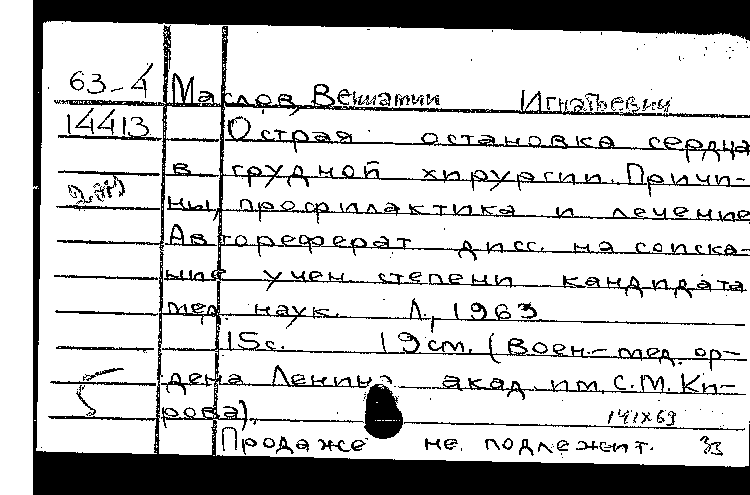 63-4 Маслов, Вениамин Игнатьевич
14413 Острая остановка сердца
в грудной хирургии. Причи-
ны, профилактика и лечение
Автореферат дисс. на соиска-
ние учен. степени кандидата
мед. наук. Л., 1963
15с. 19см. (Воен.-мед. ор-
дена Ленина акад. им. С.М. Ки-
рова).
141х63
Продаже не подлежит. 33